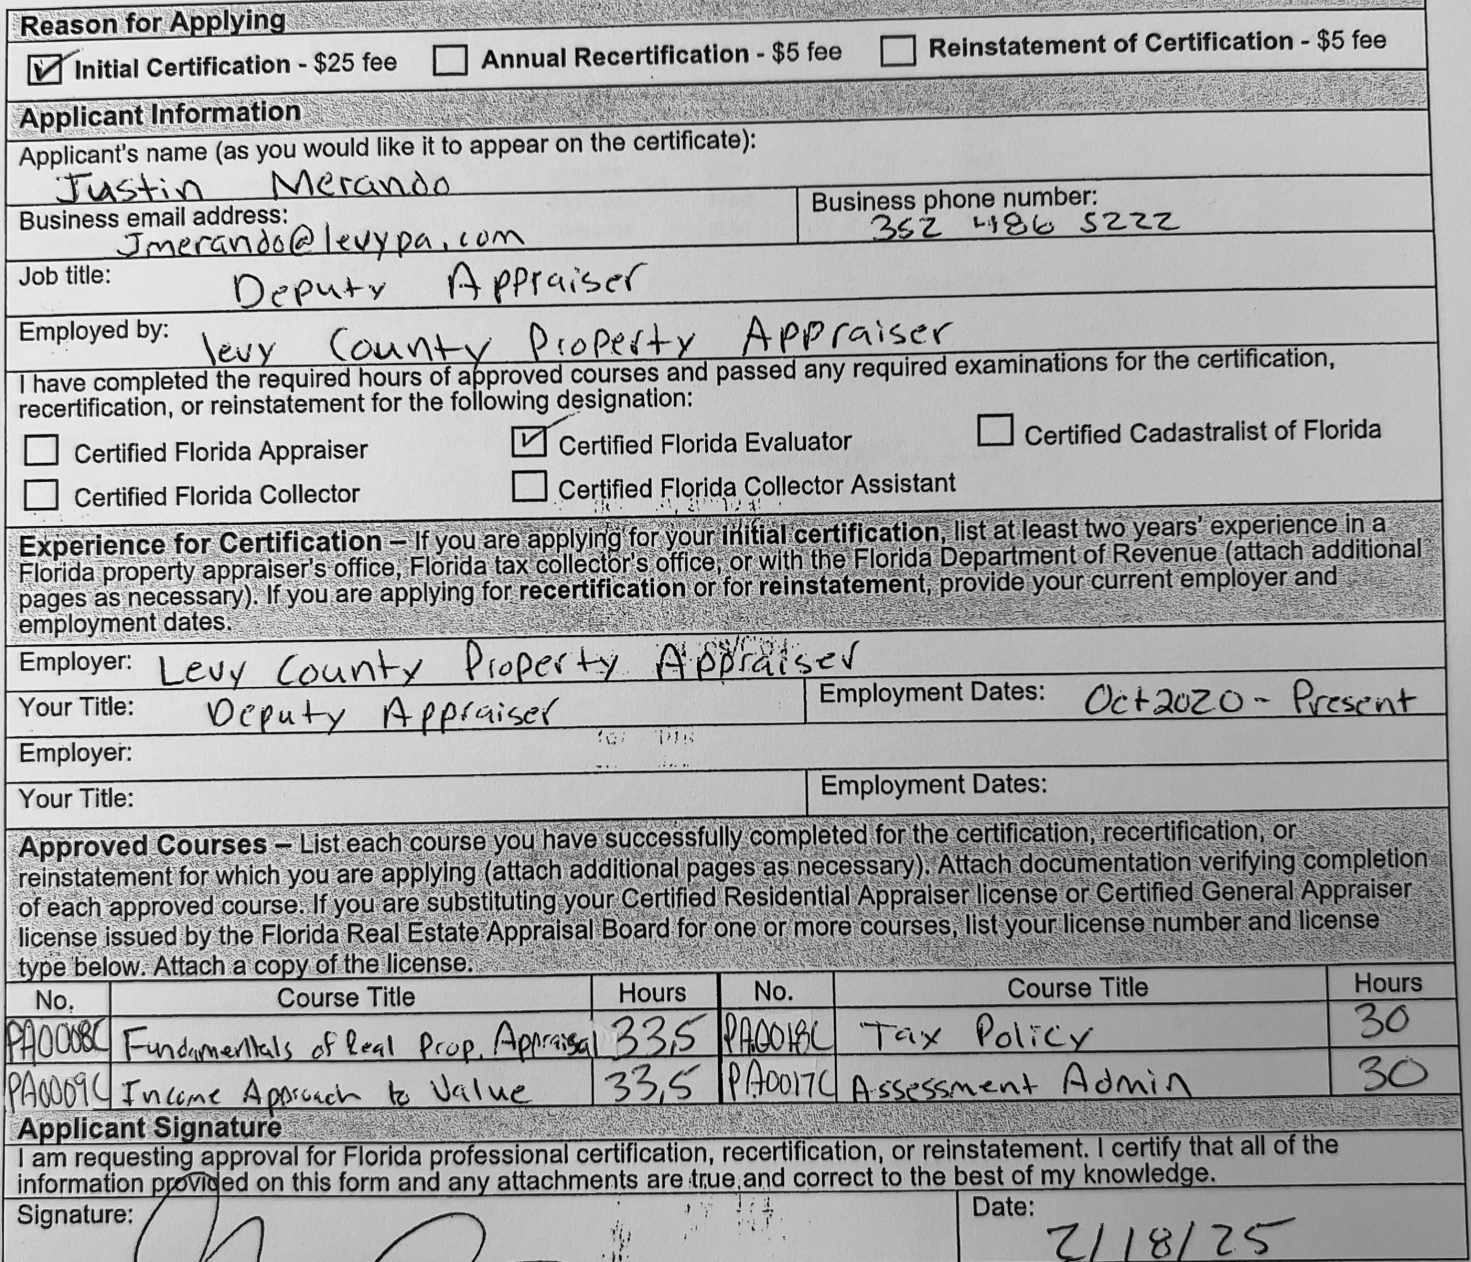 Reason for Applying
Initial Certification - $25 fee Annual Recertification - $5 fee Reinstatement of Certification - $5 fee
Applicant Information
Applicant's name (as you would like it to appear on the certificate):
Justin Merando
Business email address: Business phone number:
Jmerando@levypa.com 352 486 5222
Job title: Deputy Appraiser
Employed by: levy County Property Appraiser
I have completed the required hours of approved courses and passed any required examinations for the certification,
recertification, or reinstatement for the following designation:
Certified Florida Appraiser Certified Florida Evaluator Certified Cadastralist of Florida
Certified Florida Collector Certified Florida Collector Assistant
Experience for Certification – If you are applying for your initial certification, list at least two years' experience in a
Florida property appraiser's office, Florida tax collector's office, or with the Florida Department of Revenue (attach additional
pages as necessary). If you are applying for recertification or for reinstatement, provide your current employer and
employment dates.
Employer: Levy County Property Appraiser
Your Title: Deputy Appraiser Employment Dates: Oct 2020 - Present
Employer:
Your Title: Employment Dates:
Approved Courses – List each course you have successfully completed for the certification, recertification, or
reinstatement for which you are applying (attach additional pages as necessary). Attach documentation verifying completion
of each approved course. If you are substituting your Certified Residential Appraiser license or Certified General Appraiser
license issued by the Florida Real Estate Appraisal Board for one or more courses, list your license number and license
type below. Attach a copy of the license.
No. Course Title Hours No. Course Title Hours
PA0008C Fundamentals of Real Prop. Appraisal 33,5 PA0018C Tax Policy 30
PA0009C Income Approach to Value 33,5 PA0017C Assessment Admin 30
Applicant Signature
I am requesting approval for Florida professional certification, recertification, or reinstatement. I certify that all of the
information provided on this form and any attachments are true and correct to the best of my knowledge.
Signature: Date: 2/18/25